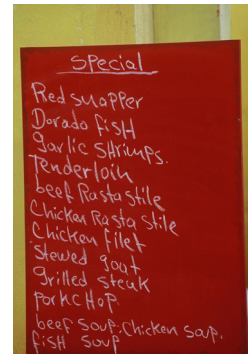 Special
Red snapper
Dorado fish
garlic SHrimps.
Tenderloin
beef Rasta stile
Chicken Rasta stile
Chicken filet
Stewed goat
grilled steak
pork cHop
beef soup. Chicken soup.
fisH soup